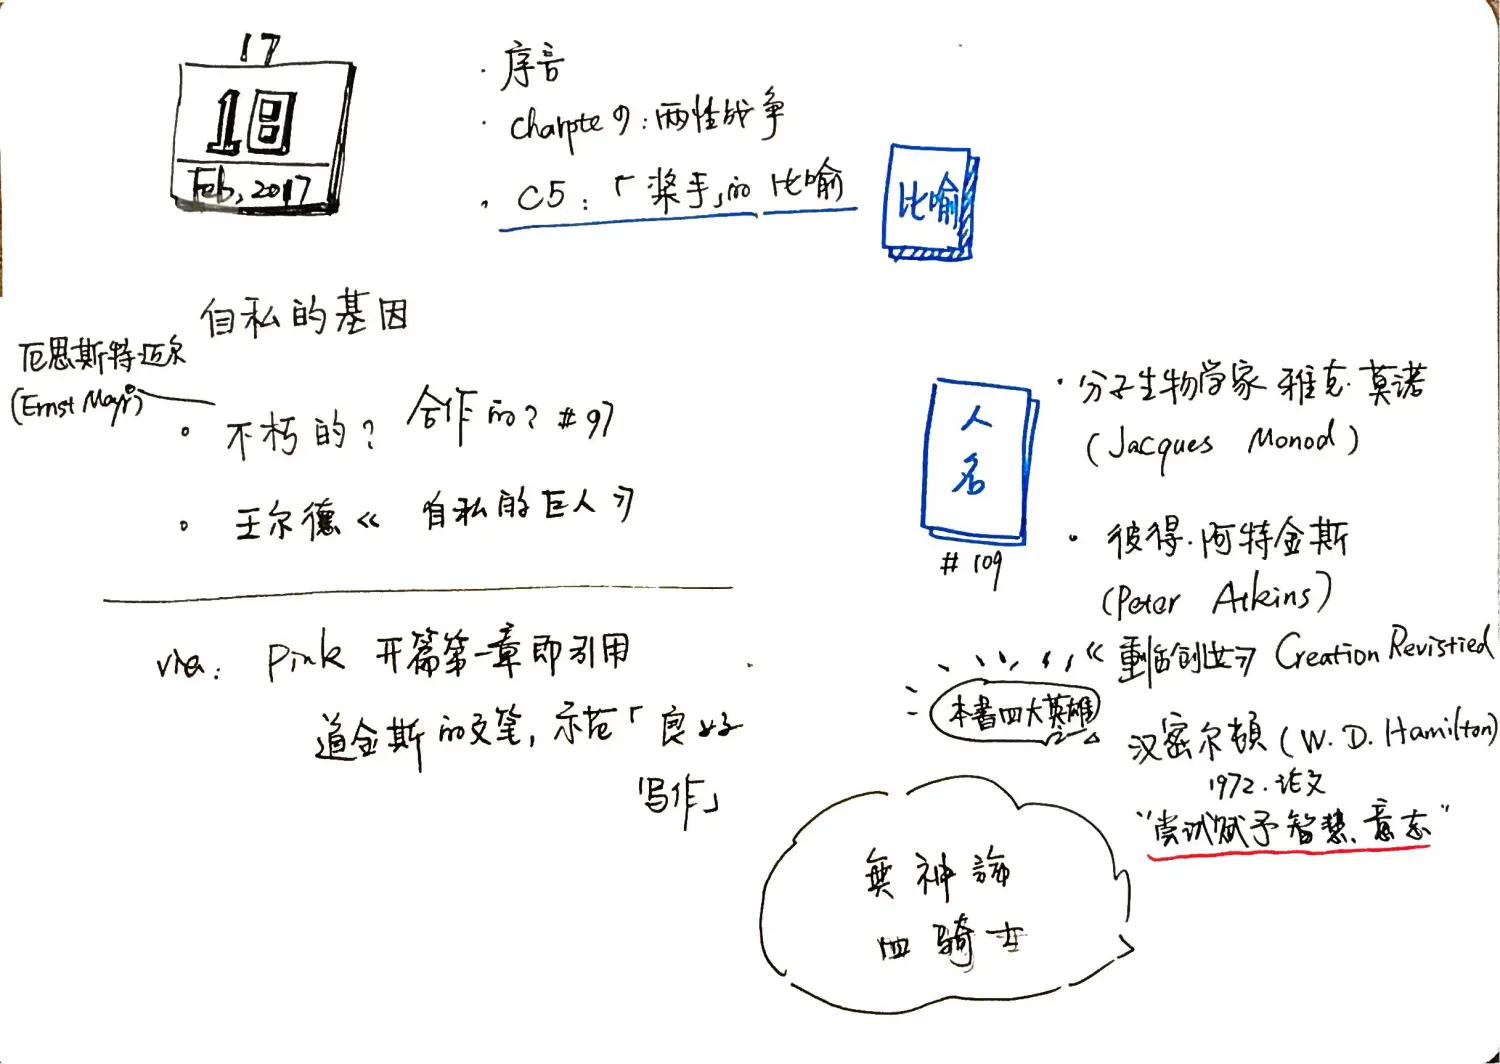 17
18
Feb, 2017
· 序言
· Charpte 9:两性战争
· C5:「桨手」的比喻
比喻
自私的基因
厄恩斯特·迈尔
(Ernst Mayr)
• 不朽的? 合作的? #97
• 王尔德《自私的巨人》
via: Pink 开篇第一章即引用
道金斯的文笔,示范「良好
写作」
人名
#109
· 分子生物学家 雅克·莫诺
(Jacques Monod)
• 彼得·阿特金斯
(Peter Atkins)
《重临创世》 Creation Revistied
本书四大英雄
汉密尔顿 (W. D. Hamilton)
1972.论文
"尝试赋予智慧、意志"
無神論
四骑士